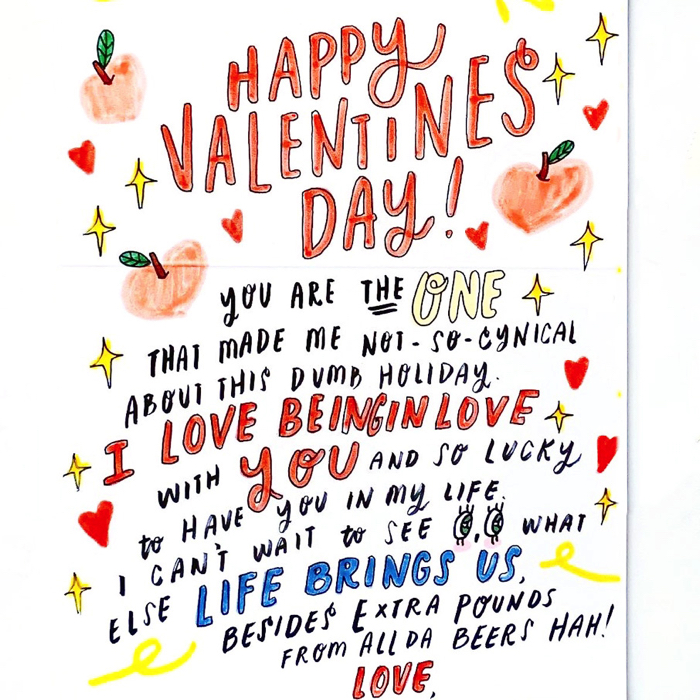 HAPPY
VALENTINES
DAY!
YOU ARE THE ONE
THAT MADE ME NOT-SO-CYNICAL
ABOUT THIS DUMB HOLIDAY.
I LOVE BEING IN LOVE
WITH YOU AND SO LUCKY
to HAVE YOU IN MY LIFE.
I CAN'T WAIT to SEE WHAT
ELSE LIFE BRINGS US,
BESIDES EXTRA POUNDS
FROM ALL DA BEERS HAH!
LOVE,